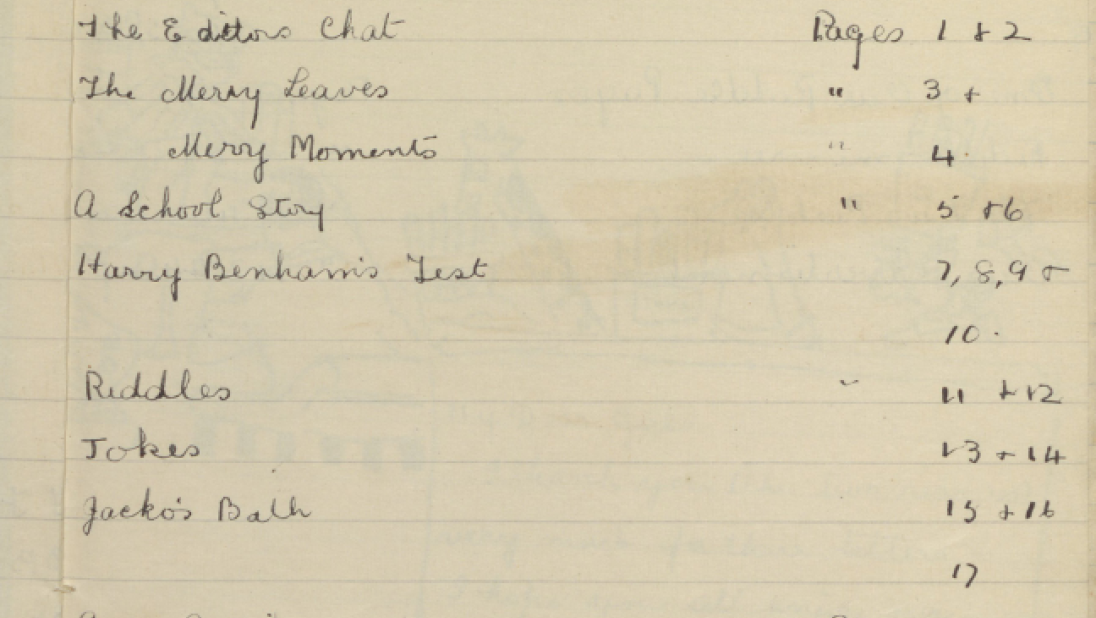 The Editors Chat Pages 1 + 2
The Merry Leaves " 3 +
Merry Moments " 4.
A School Story " 5 + 6
Harry Benham's Test 7, 8, 9 +
10.
Riddles " 11 + 12
Jokes 13 + 14
Jacko's Bath 15 + 16
17